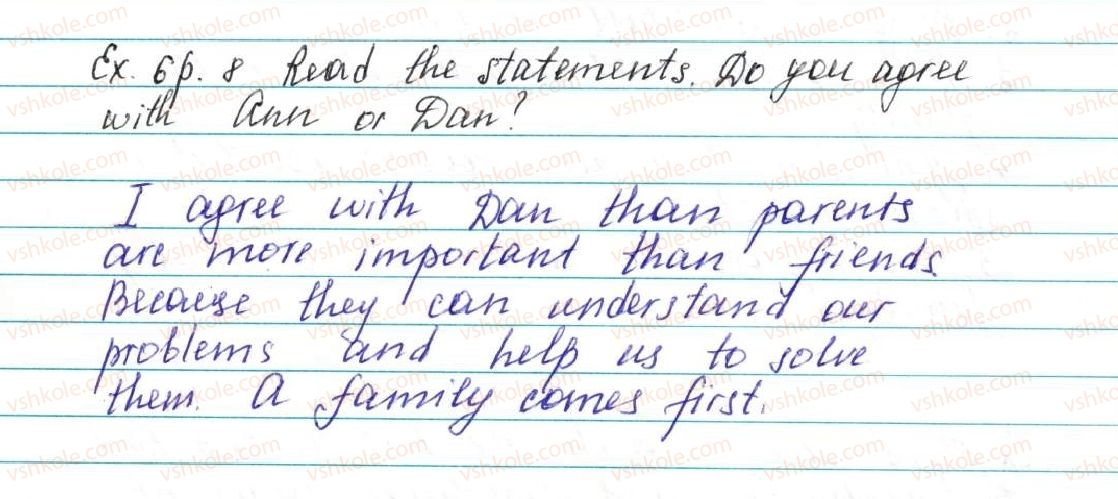 Ex. 6 p. 8 Read the statements. Do you agree
with Ann or Dan?
I agree with Dan than parents
are more important than friends
Because they can understand our
problems and help us to solve
them. A family comes first.